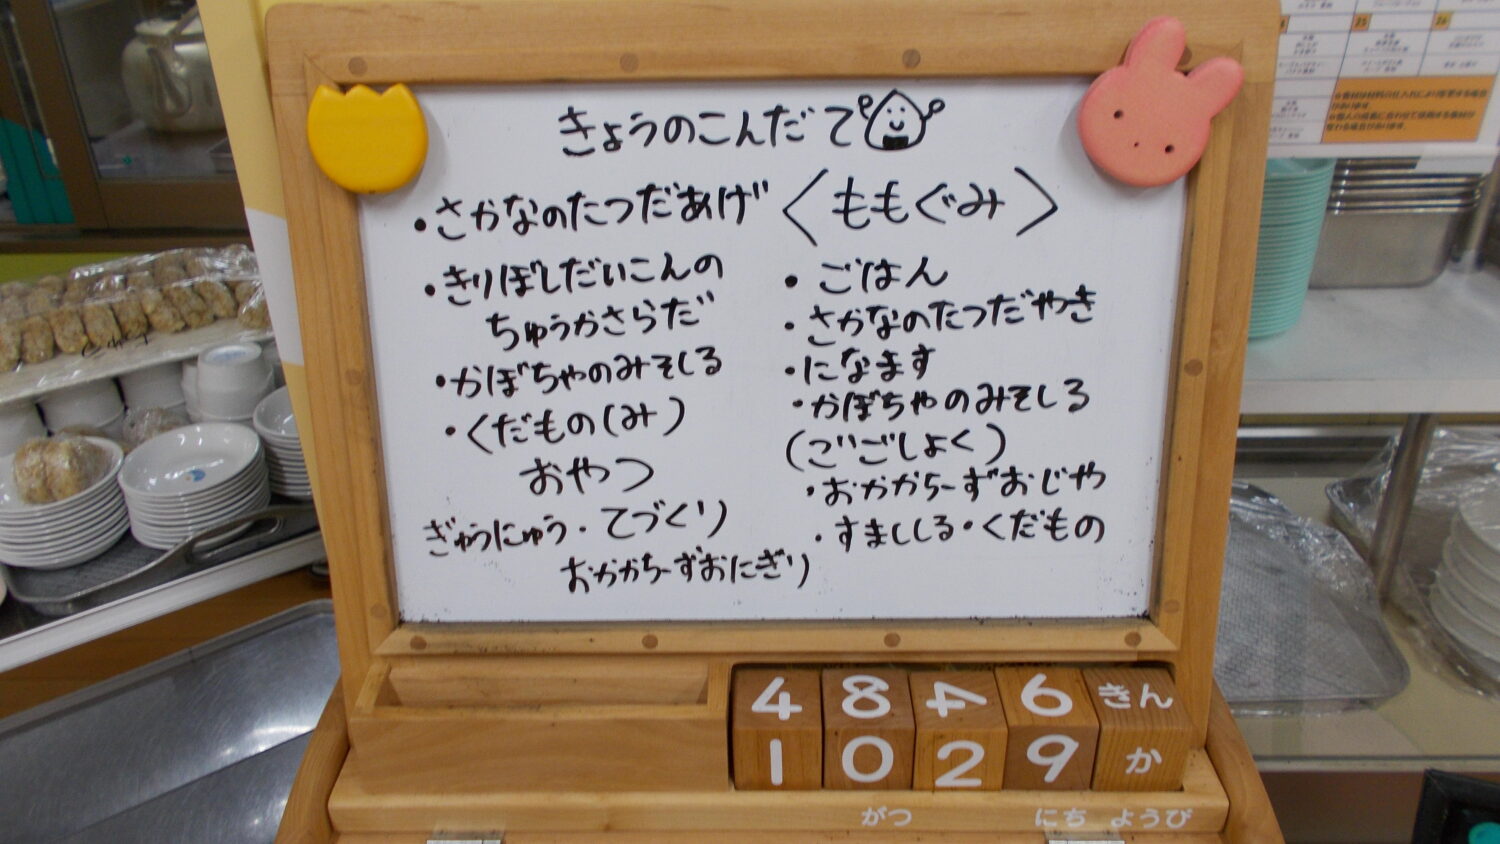 きょうのこんだて
・さかなのたつだあげ
・きりぼしだいこんの
ちゅうかさらだ
・かぼちゃのみそしる
・くだもの(み)
おやつ
ぎゅうにゅう・てづくり
おかかちーずおにぎり
〈ももぐみ〉
・ごはん
・さかなのたつだやき
・になます
・かぼちゃのみそしる
(ごじごしょく)
・おかかちーずおじや
・すましじる・くだもの
4 8 4 6 きん
1 0 2 9 か
がつ にち ようび
25 26